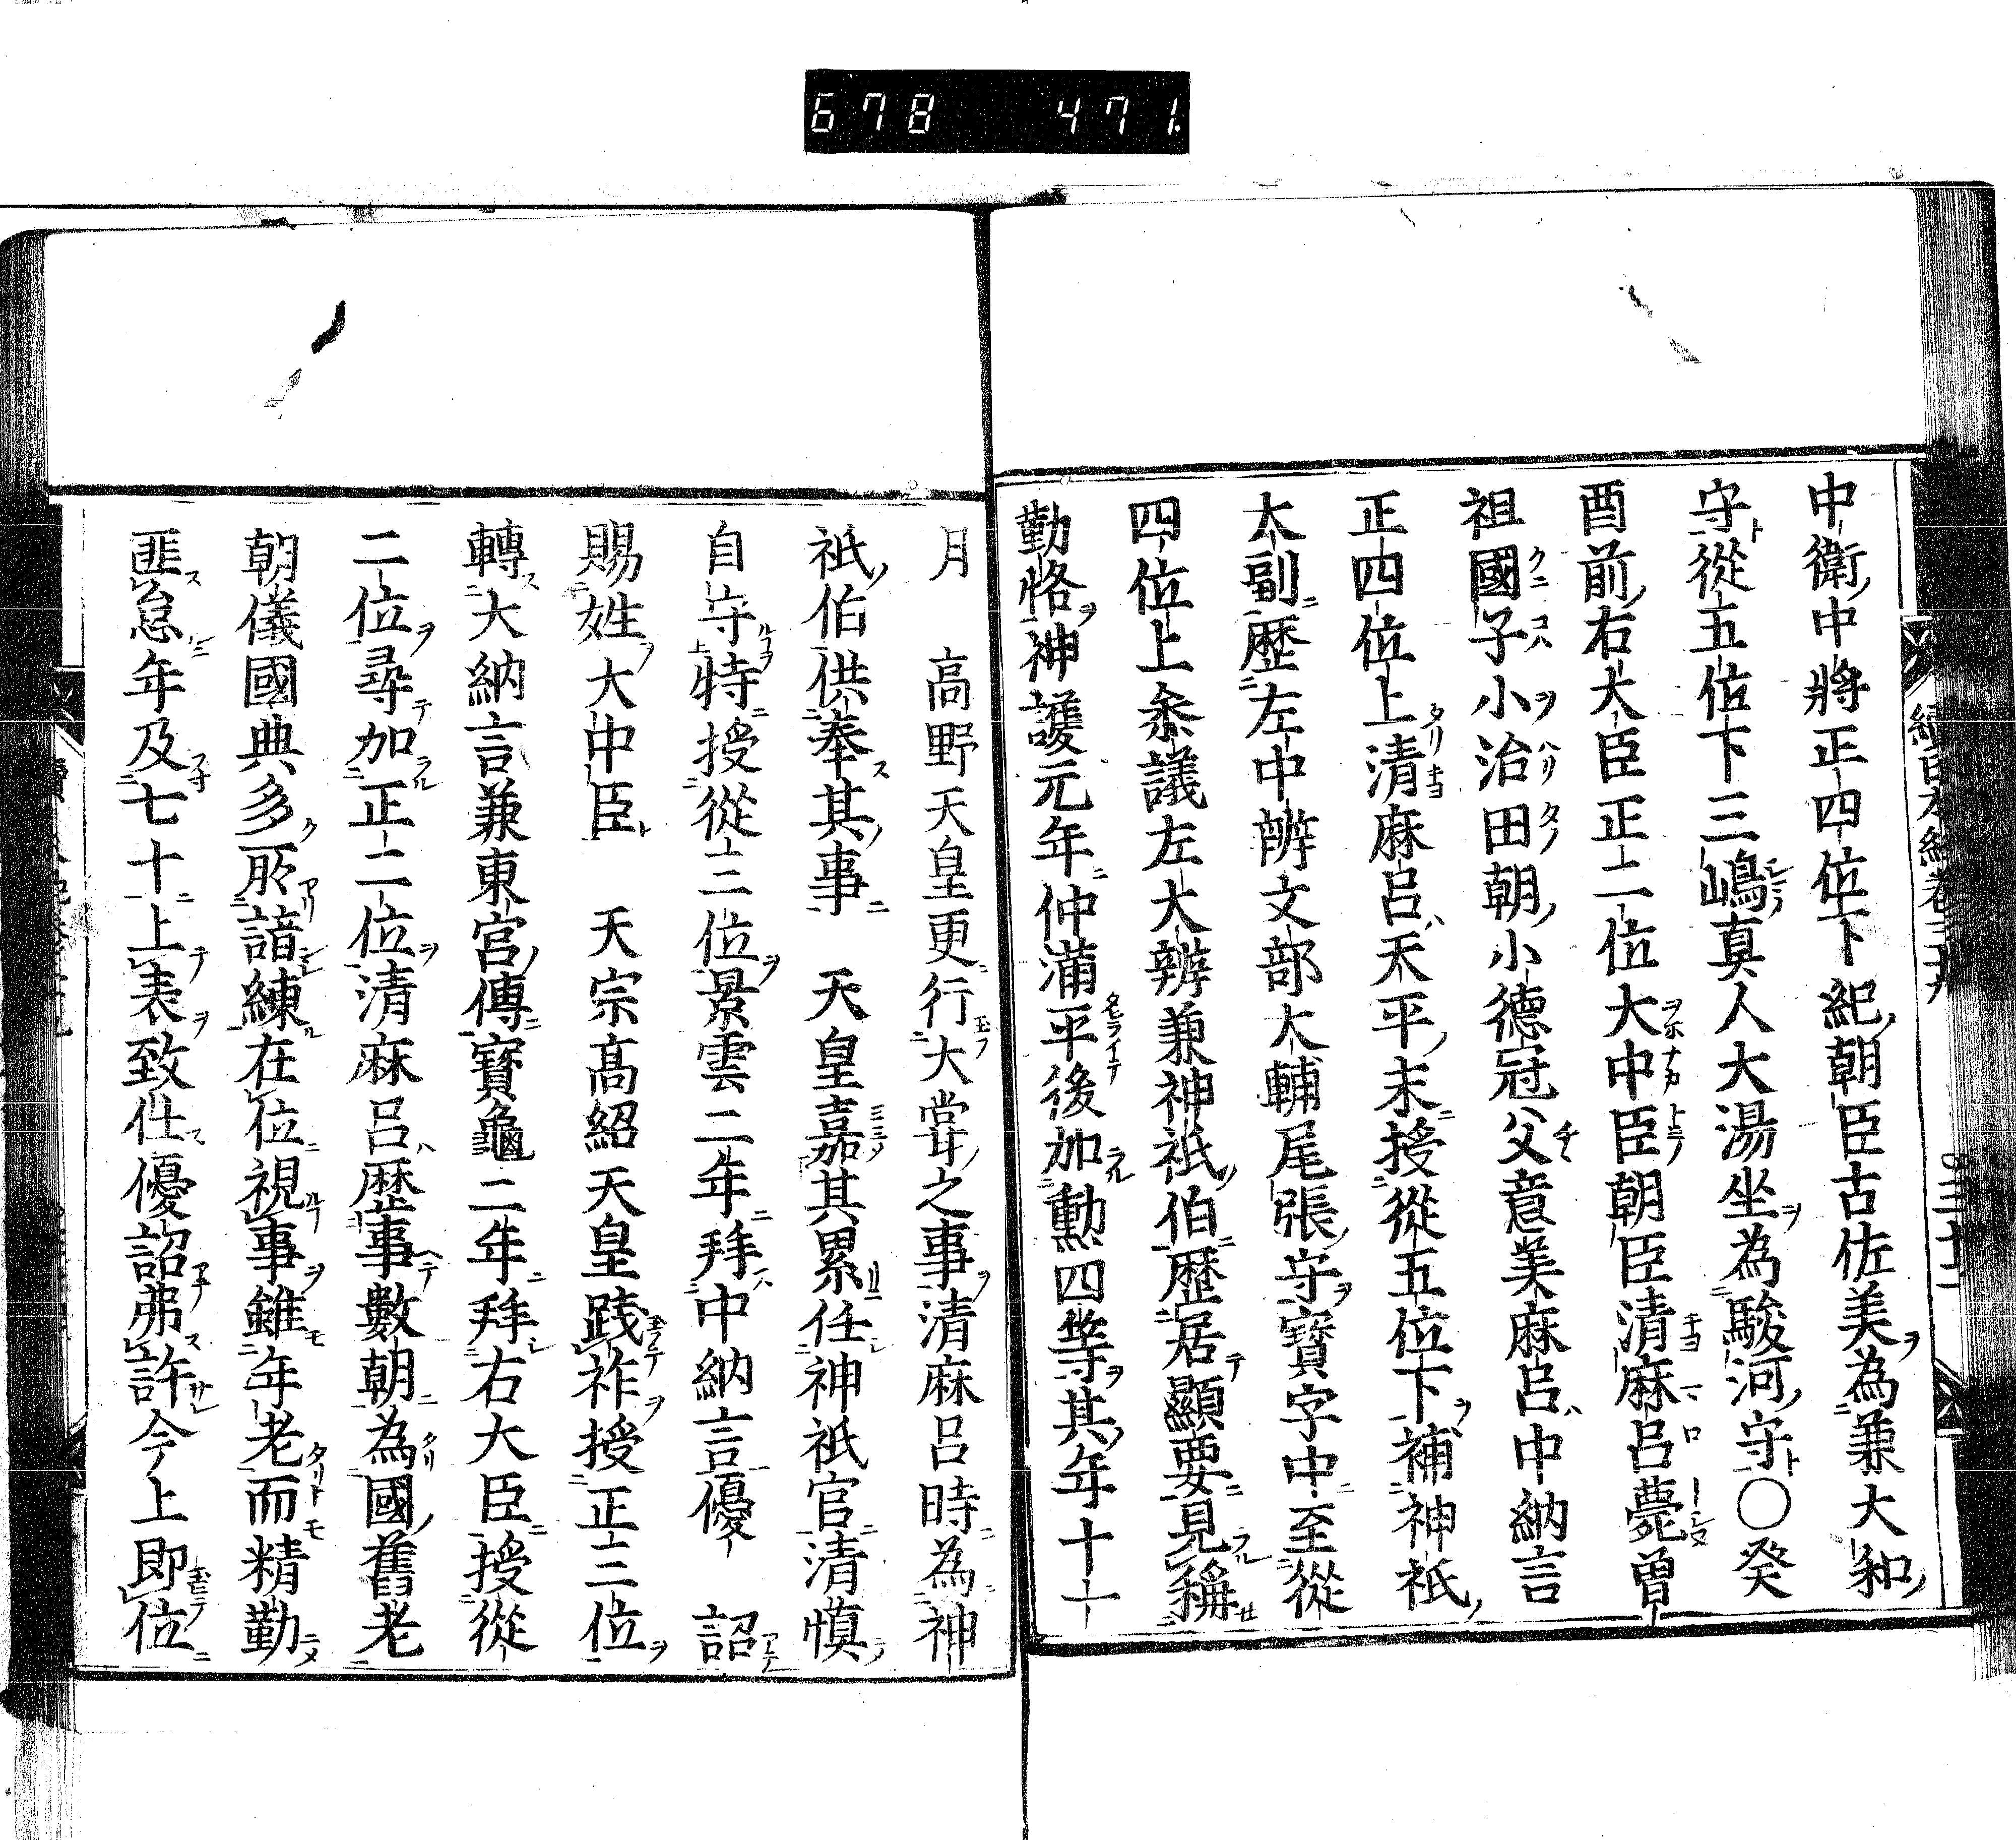 678 471.
中衛中將正四位下紀朝臣古佐美為兼大和
守從五位下三嶋真人大湯坐為駿河守○癸
酉前右大臣正二位大中臣朝臣清麻呂薨曽
祖國子小治田朝小德冠父意美麻呂中納言
正四位上清麻呂天平末授從五位下補神祇
太副歷左中辨文部大輔尾張守寶字中至從
四位上叅議左大辨兼神祇伯歷居顯要見稱
勤恪神護元年仲滿平後加勳四等其年十一
月 高野天皇更行大甞之事清麻呂時為神
祇伯供奉其事 天皇嘉其累任神祇官清愼
自守特授從三位景雲二年拜中納言優 詔
賜姓大中臣 天宗高紹天皇踐祚授正三位
轉大納言兼東宮傅寶龜二年拜右大臣授從
二位尋加正二位清麻呂歷事數朝為國舊老
朝儀國典多所諳練在位視事雖年老而精勤
匪怠年及七十上表致仕優詔弗許今上即位